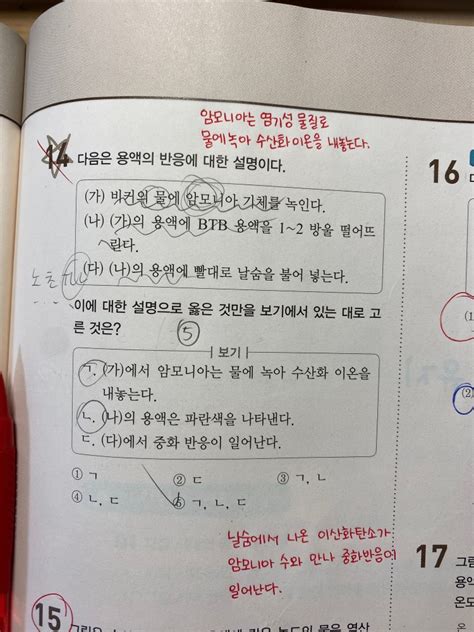 암모니아는 염기성 물질로
물에 녹아 수산화 이온을 내놓는다.
14 다음은 용액의 반응에 대한 설명이다.
(가) 비커의 물에 암모니아 기체를 녹인다.
(나) (가)의 용액에 BTB 용액을 1~2 방울 떨어뜨
린다.
(다) (나)의 용액에 빨대로 날숨을 불어 넣는다.
이에 대한 설명으로 옳은 것만을 보기에서 있는 대로 고
른 것은?
⑤
보기
ㄱ. (가)에서 암모니아는 물에 녹아 수산화 이온을
내놓는다.
ㄴ. (나)의 용액은 파란색을 나타낸다.
ㄷ. (다)에서 중화 반응이 일어난다.
① ㄱ ② ㄷ ③ ㄱ, ㄴ
④ ㄴ, ㄷ ⑤ ㄱ, ㄴ, ㄷ
날숨에서 나온 이산화탄소가
암모니아 수와 만나 중화반응이
일어난다.
15
16
(1)
(2)
17 그림
용액
온도